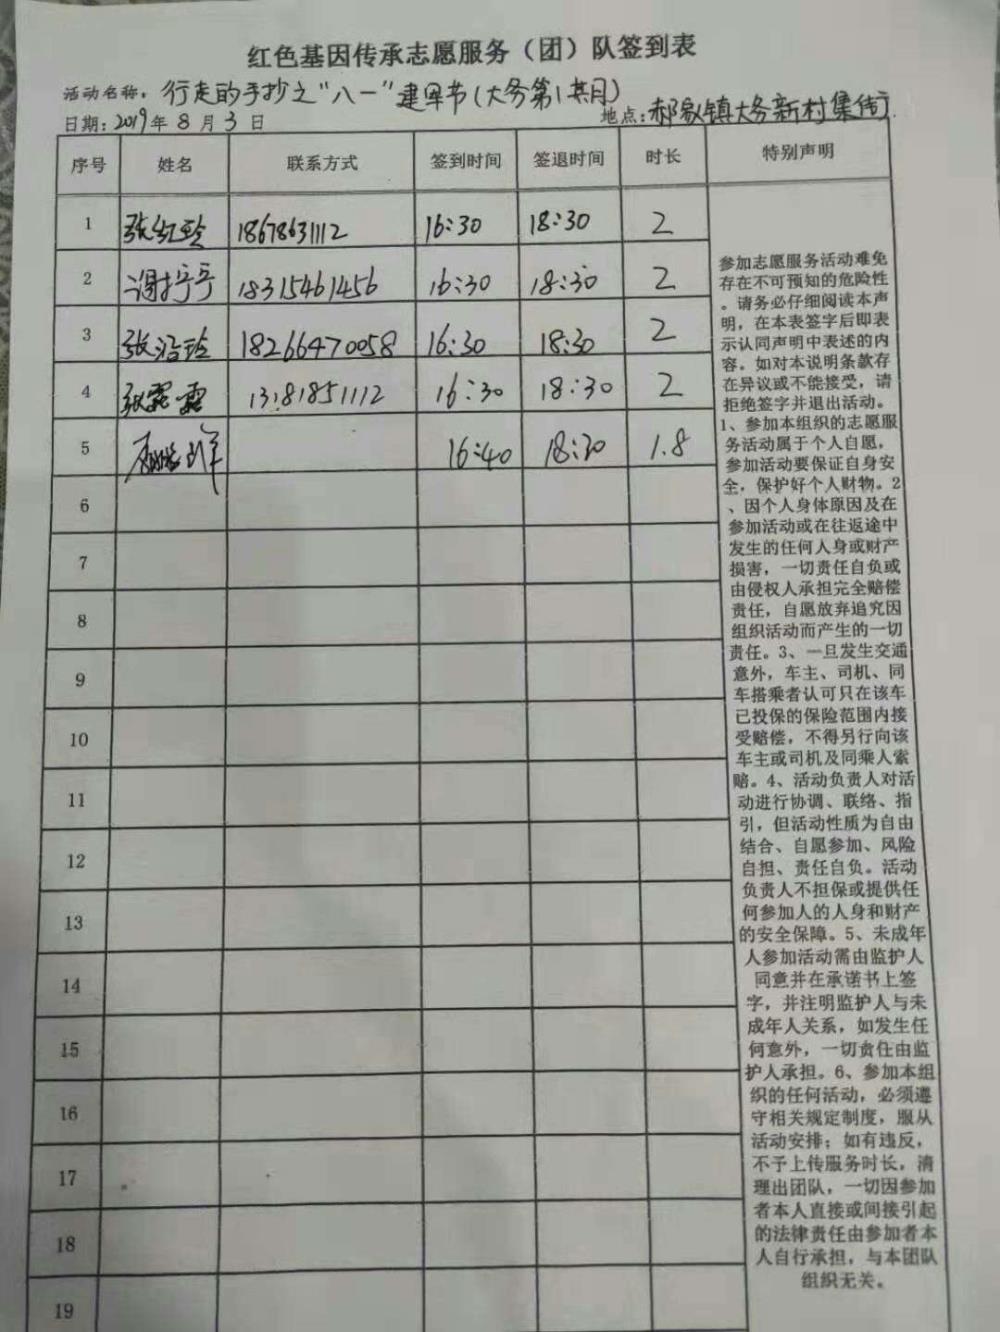 红色基因传承志愿服务（团）队签到表
活动名称：行走的手抄之“八一”建军节(大务第1共月)
日期：2019年8月3日 地点：郝家镇大务新村集街
序号 姓名 联系方式 签到时间 签退时间 时长 特别声明
1 张红玲 18678631112 16:30 18:30 2
2 谢拧宁 18315461456 16:30 18:30 2
3 张沿玲 18266470058 16:30 18:30 2
4 张霏露 13181851112 16:30 18:30 2
5 16:40 18:30 1.8
6
7
8
9
10
11
12
13
14
15
16
17
18
19
参加志愿服务活动难免
存在不可预知的危险性
。请务必仔细阅读本声
明，在本表签字后即表
示认同声明中表述的内
容。如对本说明条款存
在异议或不能接受，请
拒绝签字并退出活动。
1、参加本组织的志愿服
务活动属于个人自愿，
参加活动要保证自身安
全，保护好个人财物。2
、因个人身体原因及在
参加活动或在往返途中
发生的任何人身或财产
损害，一切责任自负或
由侵权人承担完全赔偿
责任，自愿放弃追究因
组织活动而产生的一切
责任。3、一旦发生交通
意外，车主、司机、同
车搭乘者认可只在该车
已投保的保险范围内接
受赔偿，不得另行向该
车主或司机及同乘人索
赔。4、活动负责人对活
动进行协调、联络、指
引，但活动性质为自由
结合、自愿参加、风险
自担、责任自负。活动
负责人不担保或提供任
何参加人的人身和财产
的安全保障。5、未成年
人参加活动需由监护人
同意并在承诺书上签
字，并注明监护人与未
成年人关系，如发生任
何意外，一切责任由监
护人承担。6、参加本组
织的任何活动，必须遵
守相关规定制度，服从
活动安排；如有违反，
不予上传服务时长，清
理出团队，一切因参加
者本人直接或间接引起
的法律责任由参加者本
人自行承担，与本团队
组织无关。